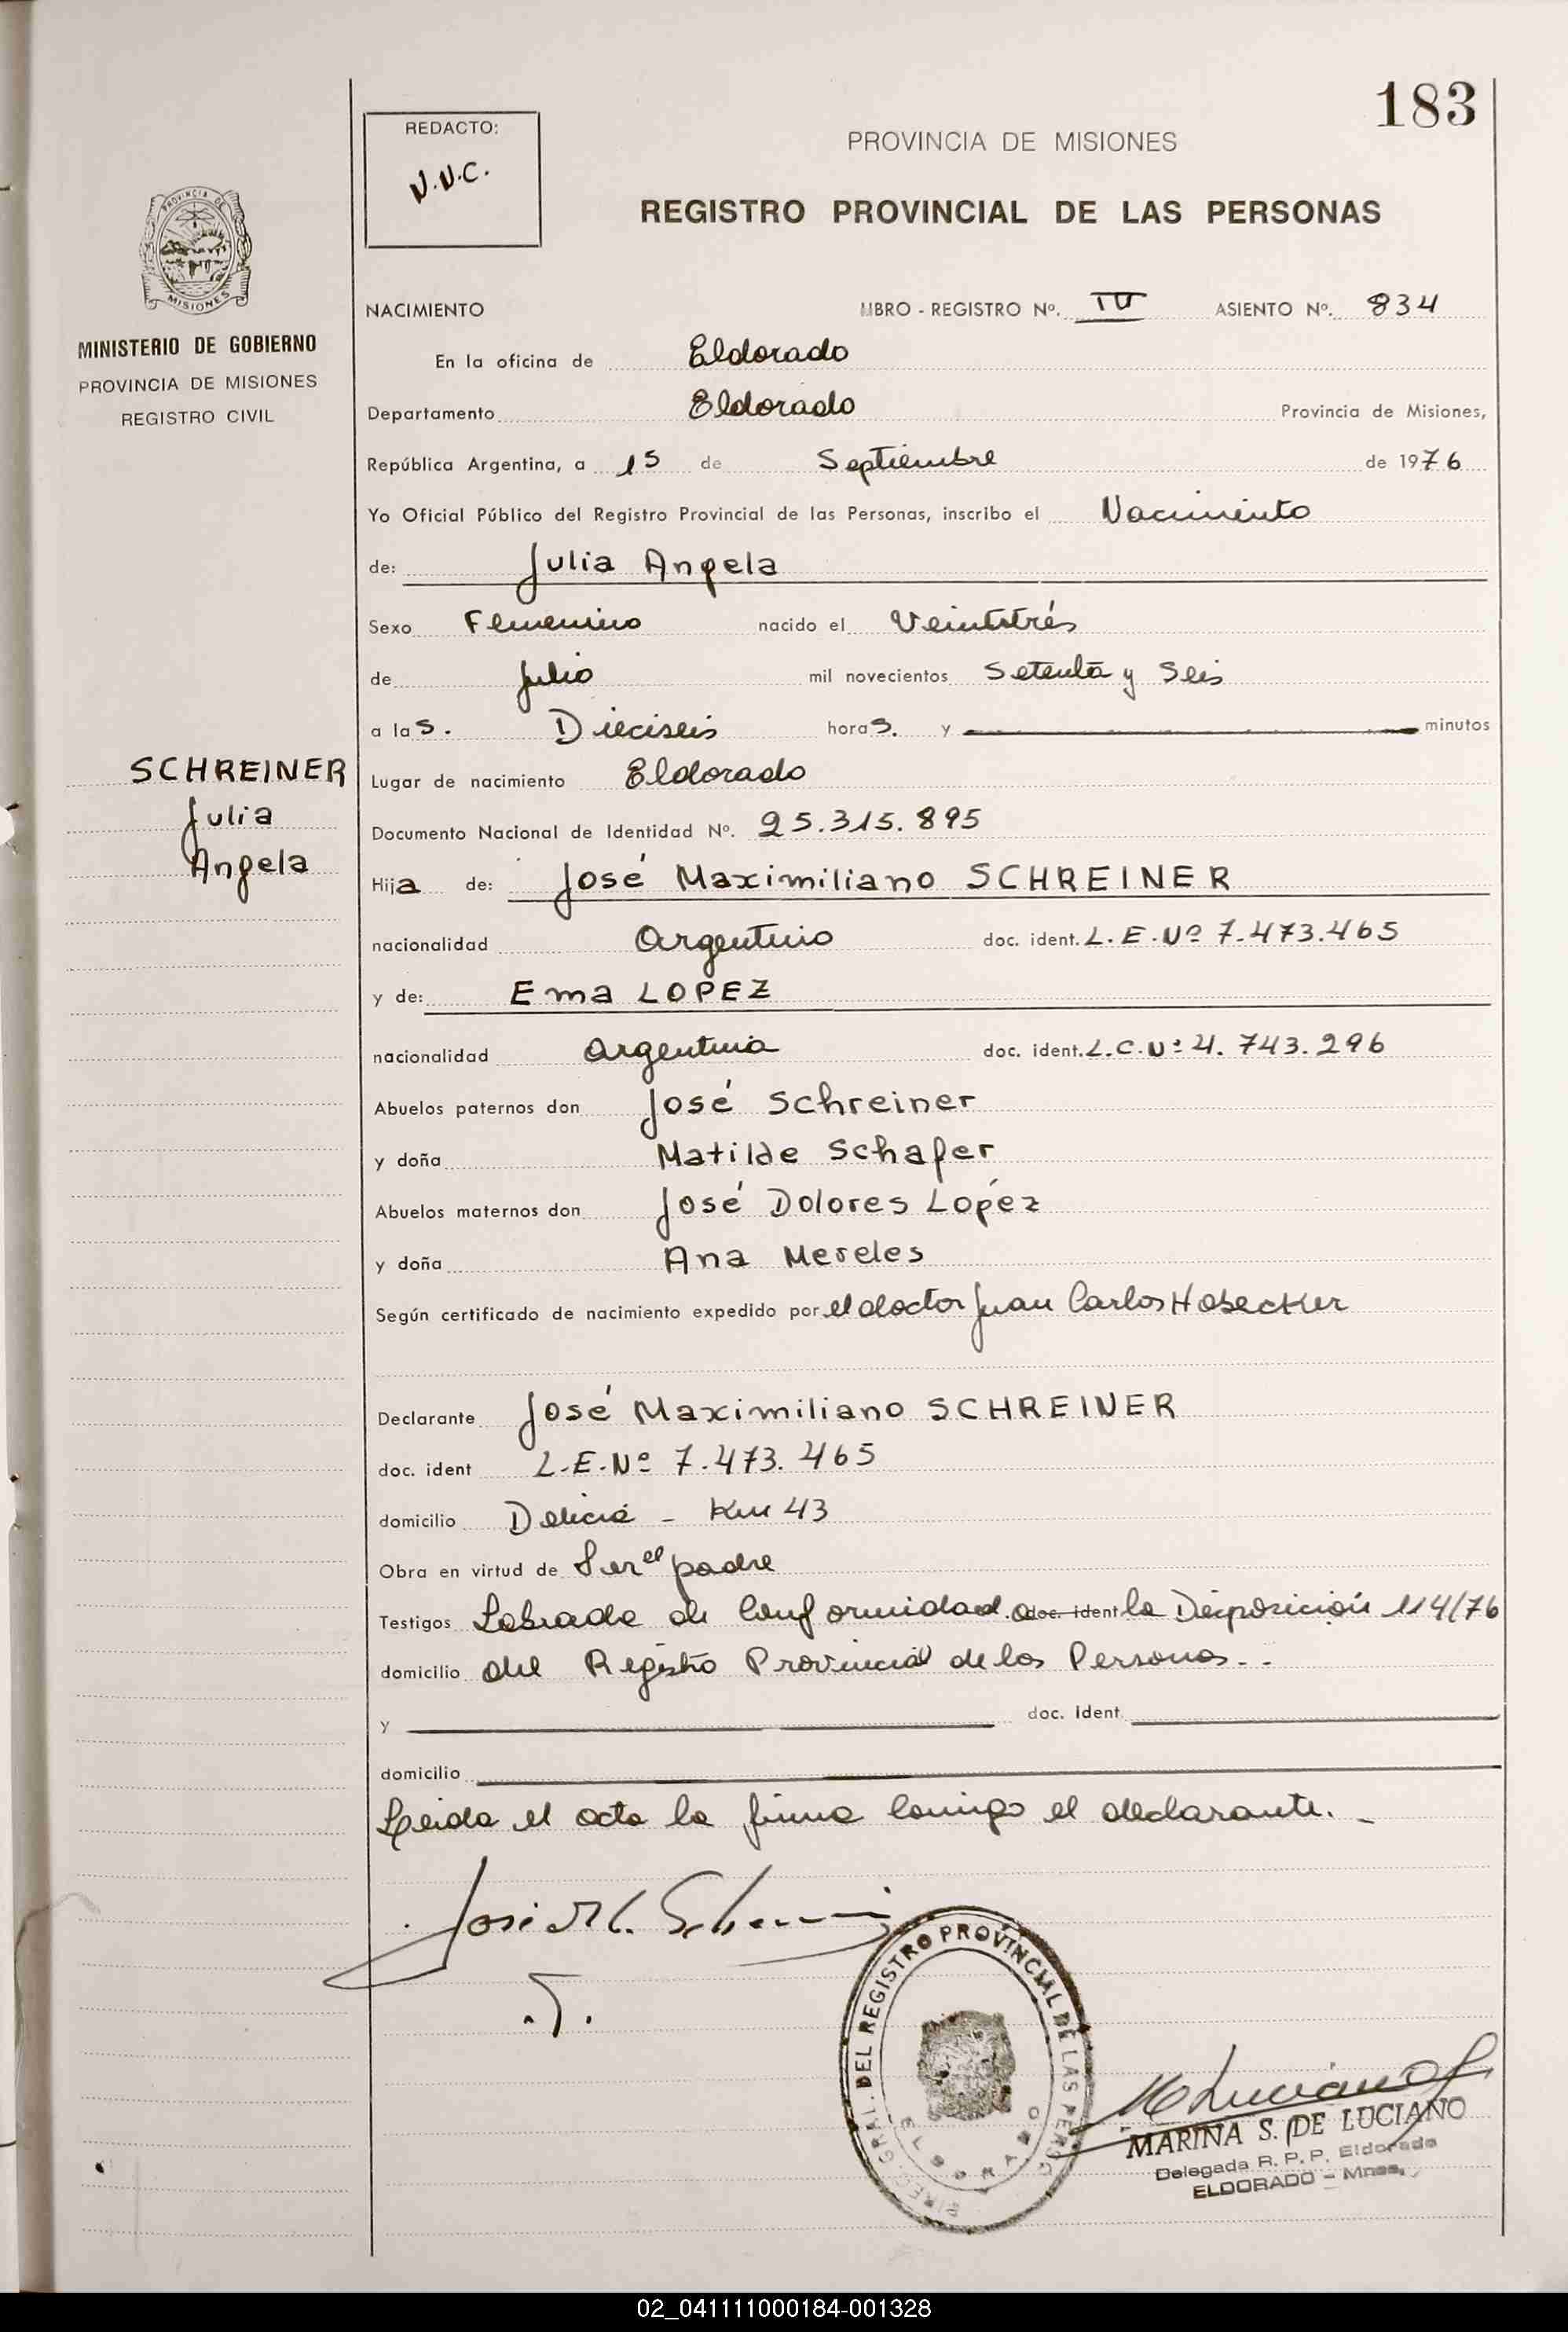 183
REDACTO:
N.N.C.
PROVINCIA DE MISIONES
REGISTRO PROVINCIAL DE LAS PERSONAS
PROVINCIA DE
MISIONES
MINISTERIO DE GOBIERNO
PROVINCIA DE MISIONES
REGISTRO CIVIL
NACIMIENTO LIBRO - REGISTRO Nº. IV ASIENTO Nº. 834
En la oficina de Eldorado
Departamento Eldorado Provincia de Misiones,
República Argentina, a 15 de Septiembre de 1976
Yo Oficial Público del Registro Provincial de las Personas, inscribo el Nacimiento
de: Julia Angela
Sexo Femenino nacido el Veintitrés
de Julio mil novecientos Setenta y Seis
a las. Dieciseis horas. y minutos
SCHREINER
Julia
Angela
Lugar de nacimiento Eldorado
Documento Nacional de Identidad Nº. 25.315.895
Hija de: José Maximiliano SCHREINER
nacionalidad Argentino doc. ident. L.E.Nº 7.473.465
y de: Ema LOPEZ
nacionalidad Argentina doc. ident. L.C.Nº 4.743.296
Abuelos paternos don José Schreiner
y doña Matilde Schafer
Abuelos maternos don José Dolores López
y doña Ana Mereles
Según certificado de nacimiento expedido por el doctor Juan Carlos Hobecker
Declarante José Maximiliano SCHREINER
doc. ident L.E.Nº 7.473.465
domicilio Delicia - Km 43
Obra en virtud de Ser el padre
Testigos Labrada de Conformidad a doc. ident la Disposición 114/76
domicilio del Registro Provincial de las Personas.-
y doc. ident.
domicilio
Leida el acta la firma conmigo el declarante.-
José M. Schreiner
DIREC. GRAL. DEL REGISTRO PROVINCIAL DE LAS PERSO
ELDORADO
MARINA S. DE LUCIANO
Delegada R. P. P. Eldorado
ELDORADO - Mnes.
02_041111000184-001328